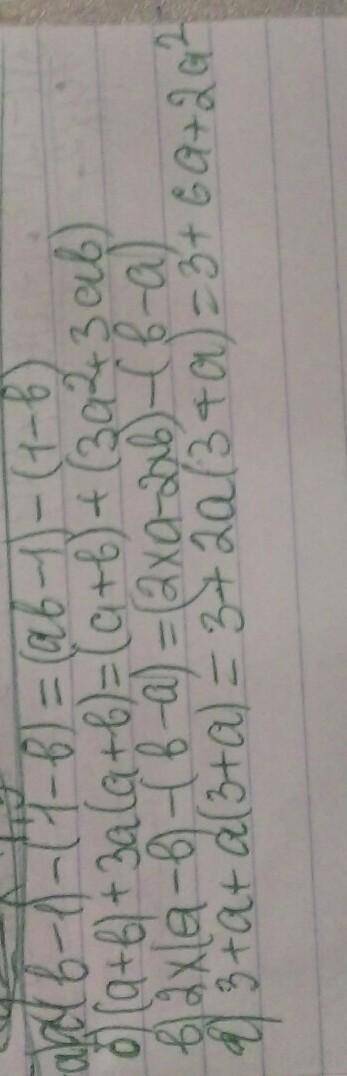 а) a(b-1)-(1-b)=(ab-1)-(1-b)
б) (a+b)+3a(a+b)=(a+b)+(3a²+3ab)
в) 2x(a-b)-(b-a)=(2xa-2xb)-(b-a)
г) 3+a+a(3+a)=3+2a(3+a)=3+6a+2a²